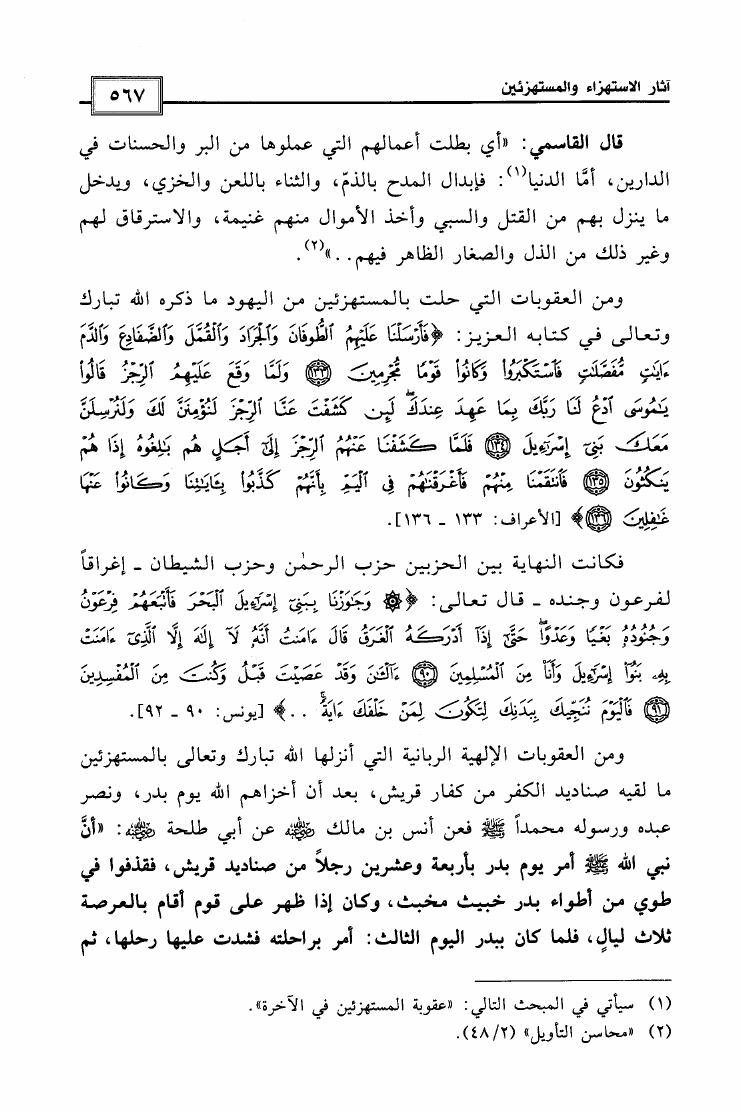 آثار الاستهزاء والمستهزئين
٥٦٧
قال القاسمي: «أي بطلت أعمالهم التي عملوها من البر والحسنات في
الدارين، أمَّا الدنيا(١): فإبدال المدح بالذمّ، والثناء باللعن والخزي، ويدخل
ما ينزل بهم من القتل والسبي وأخذ الأموال منهم غنيمة، والاسترقاق لهم
وغير ذلك من الذل والصغار الظاهر فيهم..»(٢).
ومن العقوبات التي حلت بالمستهزئين من اليهود ما ذكره الله تبارك
وتعالى في كتابه العزيز: ﴿فَأَرْسَلْنَا عَلَيْهِمُ ٱلطُّوفَانَ وَٱلْجَرَادَ وَٱلْقُمَّلَ وَٱلضَّفَادِعَ وَٱلدَّمَ
ءَايَٰتٍ مُّفَصَّلَٰتٍ فَٱسْتَكْبَرُوا۟ وَكَانُوا۟ قَوْمًا مُّجْرِمِينَ ﴿١٣٣﴾ وَلَمَّا وَقَعَ عَلَيْهِمُ ٱلرِّجْزُ قَالُوا۟
يَٰمُوسَى ٱدْعُ لَنَا رَبَّكَ بِمَا عَهِدَ عِندَكَ ۖ لَئِن كَشَفْتَ عَنَّا ٱلرِّجْزَ لَنُؤْمِنَنَّ لَكَ وَلَنُرْسِلَنَّ
مَعَكَ بَنِىٓ إِسْرَٰٓءِيلَ ﴿١٣٤﴾ فَلَمَّا كَشَفْنَا عَنْهُمُ ٱلرِّجْزَ إِلَىٰٓ أَجَلٍ هُم بَٰلِغُوهُ إِذَا هُمْ
يَنكُثُونَ ﴿١٣٥﴾ فَٱنتَقَمْنَا مِنْهُمْ فَأَغْرَقْنَٰهُمْ فِى ٱلْيَمِّ بِأَنَّهُمْ كَذَّبُوا۟ بِـَٔايَٰتِنَا وَكَانُوا۟ عَنْهَا
غَٰفِلِينَ ﴿١٣٦﴾﴾ [الأعراف: ١٣٣ ـ ١٣٦].
فكانت النهاية بين الحزبين حزب الرحمٰن وحزب الشيطان ـ إغراقاً
لفرعون وجنده ـ قال تعالى: ﴿۞ وَجَٰوَزْنَا بِبَنِىٓ إِسْرَٰٓءِيلَ ٱلْبَحْرَ فَأَتْبَعَهُمْ فِرْعَوْنُ
وَجُنُودُهُۥ بَغْيًا وَعَدْوًا ۖ حَتَّىٰٓ إِذَآ أَدْرَكَهُ ٱلْغَرَقُ قَالَ ءَامَنتُ أَنَّهُۥ لَآ إِلَٰهَ إِلَّا ٱلَّذِىٓ ءَامَنَتْ
بِهِۦ بَنُوٓا۟ إِسْرَٰٓءِيلَ وَأَنَا۠ مِنَ ٱلْمُسْلِمِينَ ﴿٩٠﴾ ءَآلْـَٰٔنَ وَقَدْ عَصَيْتَ قَبْلُ وَكُنتَ مِنَ ٱلْمُفْسِدِينَ
﴿٩١﴾ فَٱلْيَوْمَ نُنَجِّيكَ بِبَدَنِكَ لِتَكُونَ لِمَنْ خَلْفَكَ ءَايَةً ۚ ..﴾ [يونس: ٩٠ ـ ٩٢].
ومن العقوبات الإلهية الربانية التي أنزلها الله تبارك وتعالى بالمستهزئين
ما لقيه صناديد الكفر من كفار قريش، بعد أن أخزاهم الله يوم بدر، ونصر
عبده ورسوله محمداً ﷺ فعن أنس بن مالك رضي الله عنه عن أبي طلحة رضي الله عنه: «أنَّ
نبي الله ﷺ أمر يوم بدر بأربعة وعشرين رجلاً من صناديد قريش، فقذفوا في
طوي من أطواء بدر خبيث مخبث، وكان إذا ظهر على قوم أقام بالعرصة
ثلاث ليالٍ، فلما كان ببدر اليوم الثالث: أمر براحلته فشدت عليها رحلها، ثم
(١) سيأتي في المبحث التالي: «عقوبة المستهزئين في الآخرة».
(٢) «محاسن التأويل» (٤٨/٢).